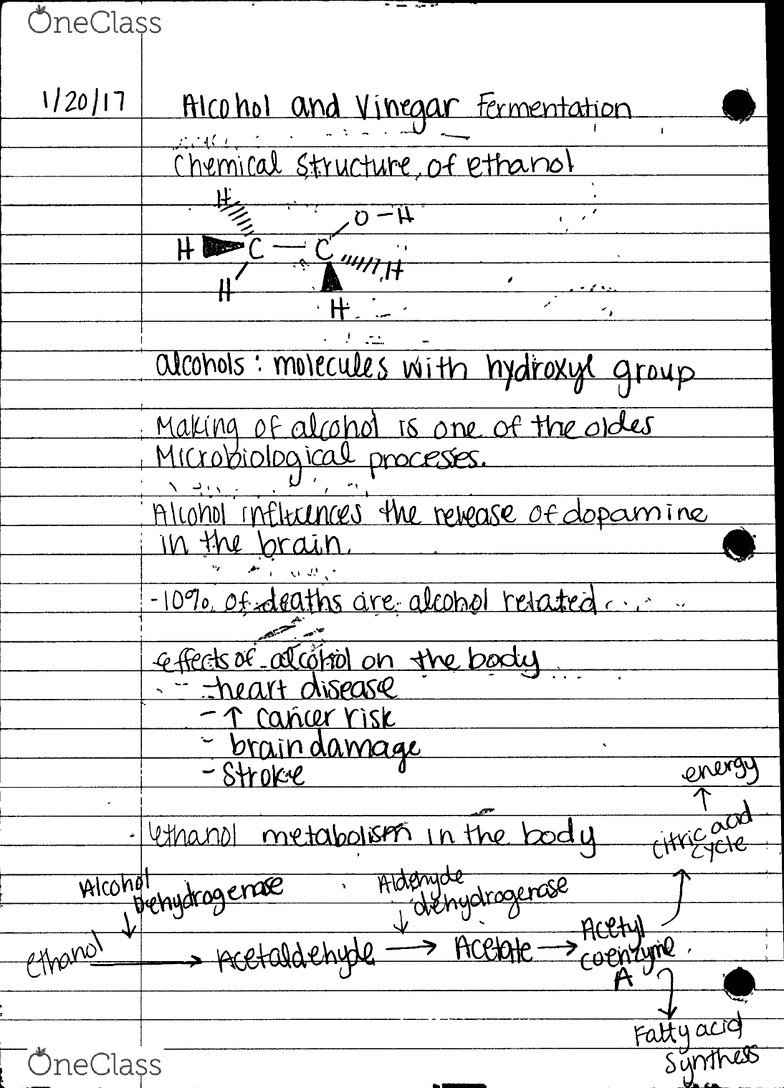 OneClass
1/20/17
Alcohol and Vinegar Fermentation
Chemical Structure of ethanol
H
O-H
H C - C H
H
H
alcohols: molecules with hydroxyl group
Making of alcohol is one of the oldes
Microbiological processes.
Alcohol influences the release of dopamine
in the brain.
-10% of deaths are alcohol related
effects of alcohol on the body
-heart disease
-↑ cancer risk
- brain damage
- Stroke
energy
↑
citric acid
cycle
ethanol metabolism in the body
Alcohol
Dehydrogenase
Aldehyde
dehydrogenase
ethanol → Acetaldehyde → Acetate → Acetyl
coenzyme
A
Fatty acid
Synthess
OneClass